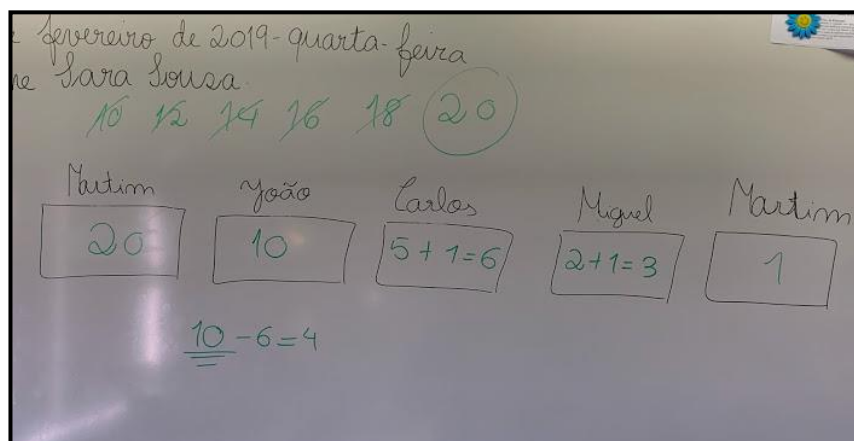 fevereiro de 2019-quarta-feira
Sara Sousa.
10 12 14 16 18 20
Martim João Carlos Miguel Martim
20 10 5+1=6 2+1=3 1
10-6=4